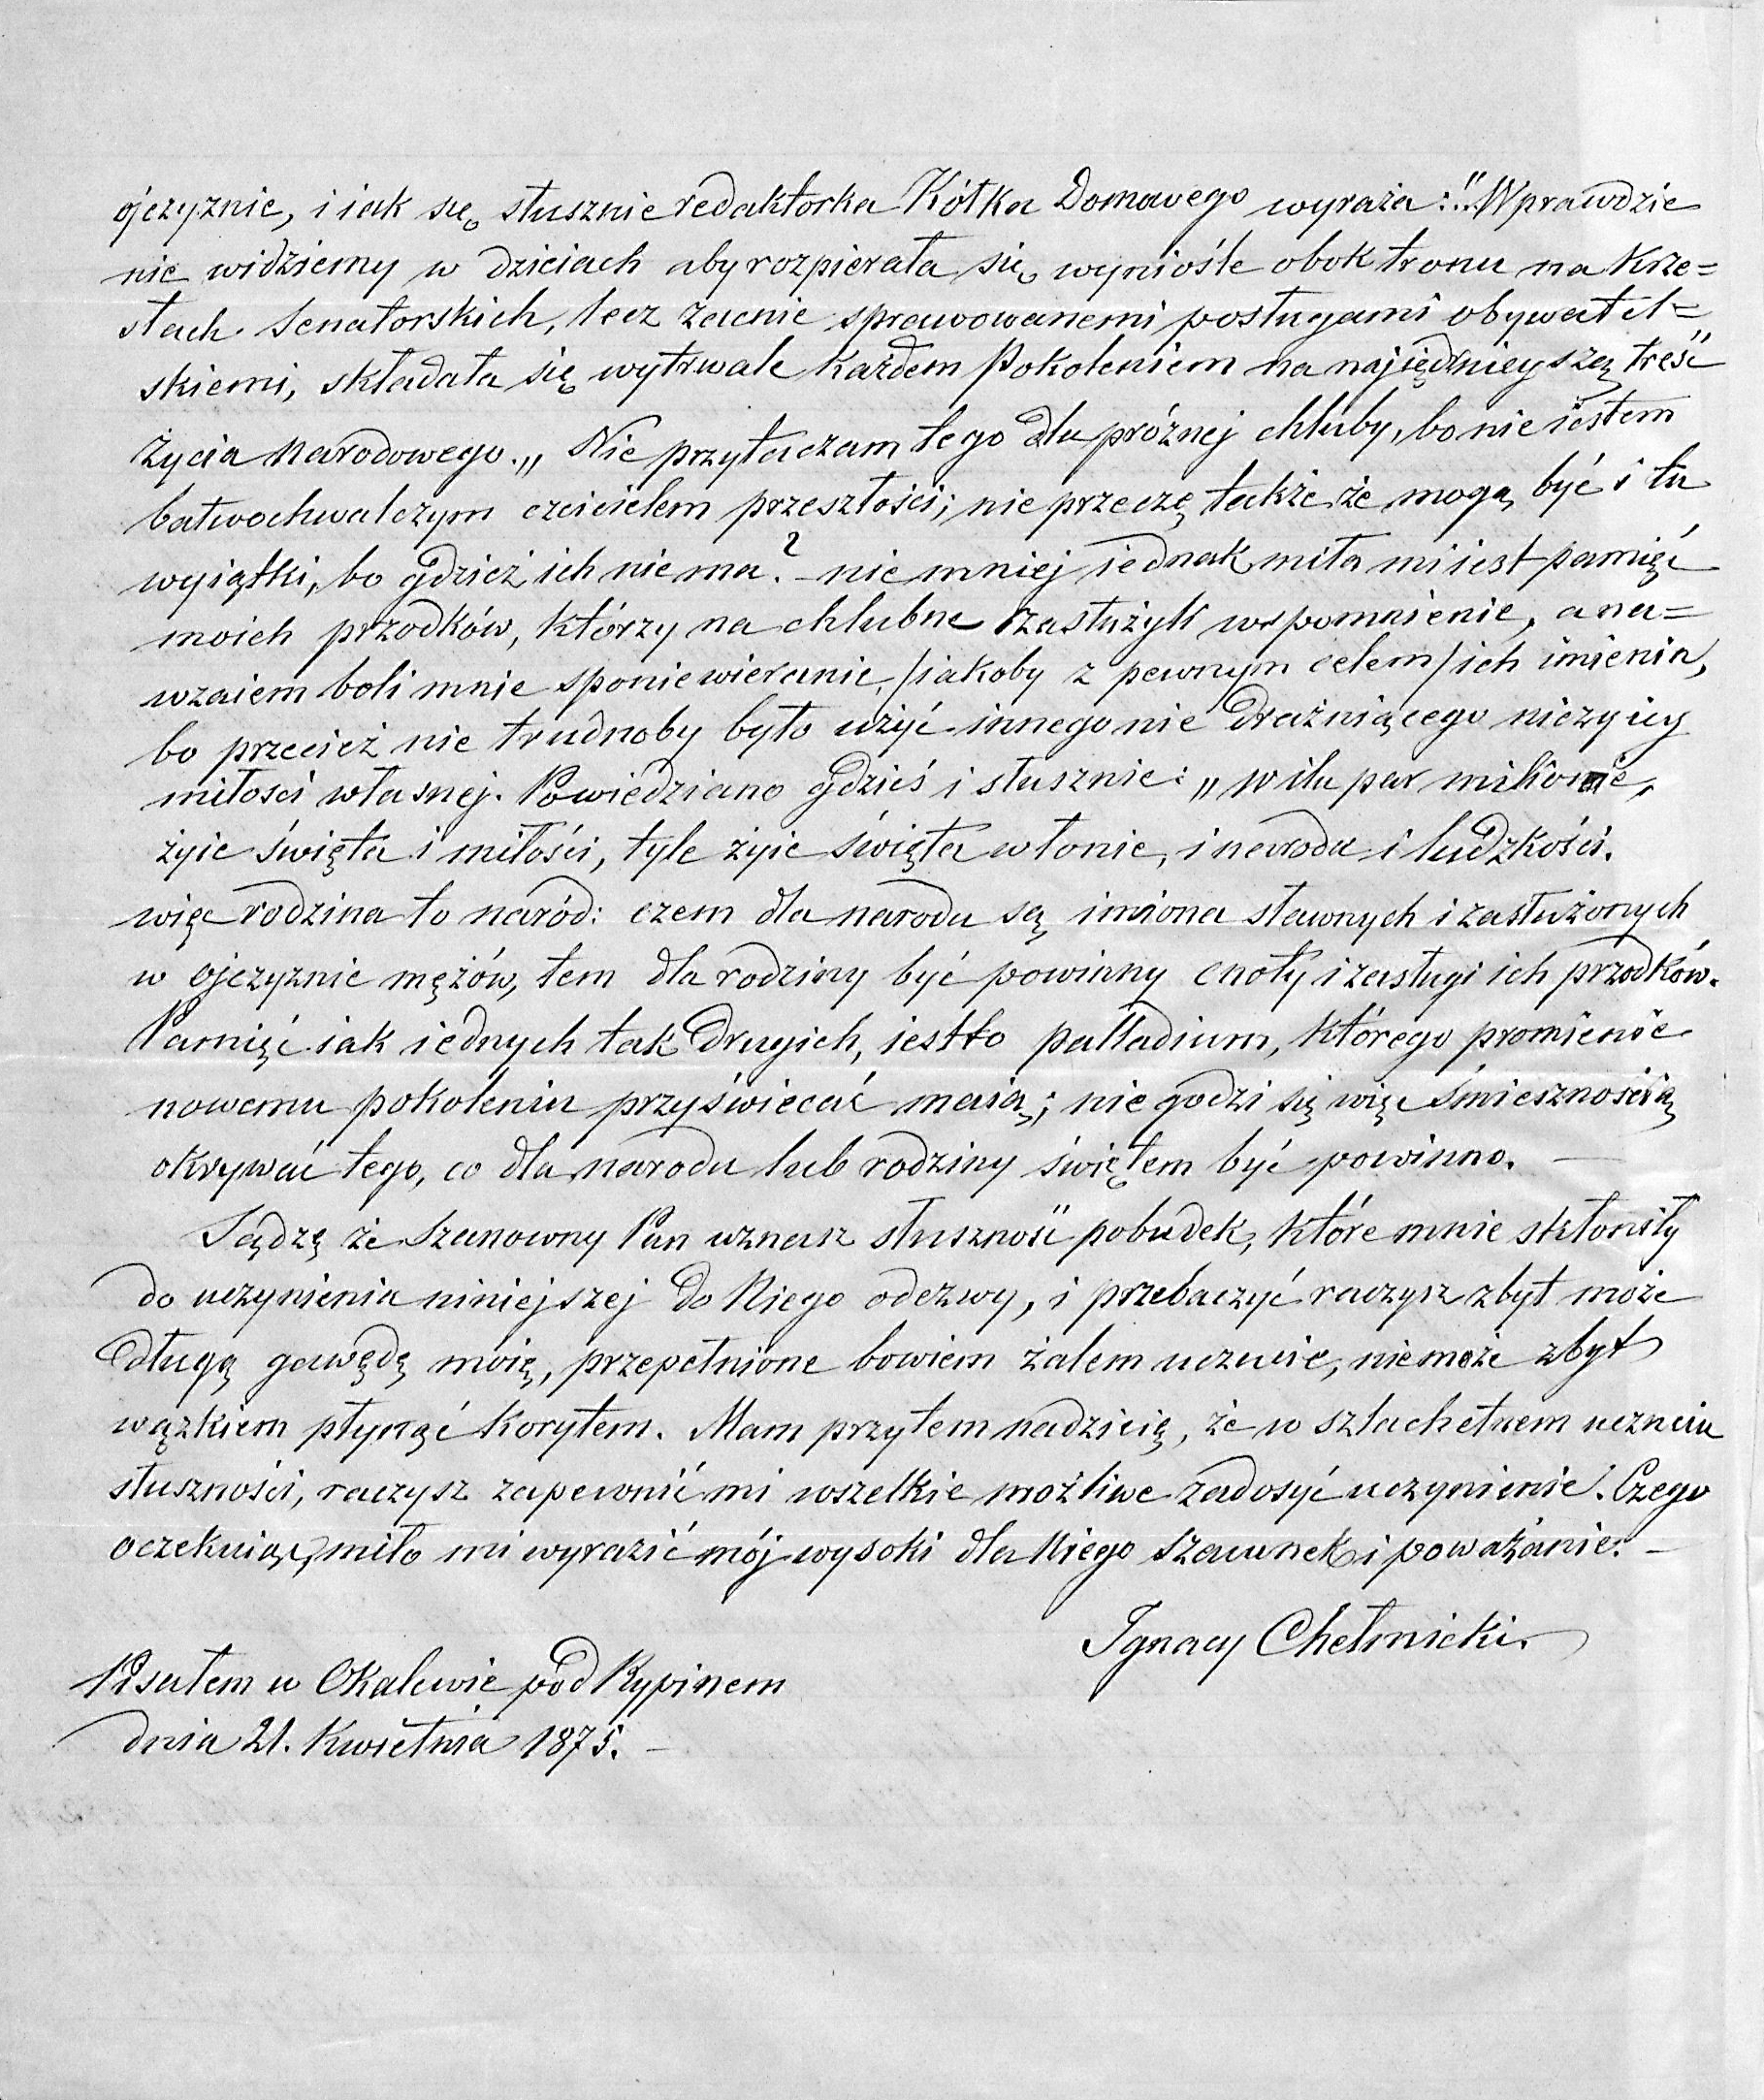 ojczyznie, i iak się słusznie redaktorka Kółka Domowego wyraża: "Wprawdzie
nie widziemy w dzieiach aby rozpierała się wyniośle obok tronu na krze=
słach Senatorskich, lecz zacnie sprawowanemi posługami obywatel=
skiemi, składała się wytrwale każdem pokoleniem na najiędrnieyszą treść
życia narodowego.„ Nie przytaczam tego dla próżnej chluby, bo nie iestem
bałwochwalczym czcicielem przeszłości; nie przeczę także że mogą być i tu
wyiątki, bo gdzież ich nie ma? – nie mniej iednak miła mi iest pamięć
moich przodków, którzy na chlubne zasłużyli wspomnienie, a na=
wzaiem boli mnie sponiewieranie, /iakoby z pewnym celem/ ich imienia,
bo przecież nie trudnoby było użyć innego nie drażniącego niczyiey
miłości własnej. Powiedziano gdzieś i słusznie: „W ilu par milionie,
żyie święta i miłości, tyle żyie święta w łonie, i narodu i ludzkości.
więc rodzina to naród: czem dla narodu są imiona sławnych i zasłużonych
w ojczyznie mężów, tem dla rodziny być powinny cnoty i zasługi ich przodków.
Pamięć iak iednych tak drugich, iestto palladium, którego promienie
nowemu pokoleniu przyświecać maią; nie godzi się więc śmiesznością
okrywać tego, co dla narodu lub rodziny świętem być powinno. —
Sądzę że Szanowny Pan uznasz słuszność pobudek, które mnie skłoniły
do uczynienia niniejszej do Niego odezwy, i przebaczyć raczysz zbyt może
długą gawędę moię, przepełnione bowiem żalem uczucie, nie może zbyt
wązkiem płynąć korytem. Mam przytem nadzieię, że w szlachetnem uczuciu
słuszności, raczysz zapewnić mi wszelkie możliwe zadosyć uczynienie. Czego
oczekuiąc, miło mi wyrazić mój wysoki dla Niego szacunek i poważanie. —
Ignacy Chełmicki
Pisałem w Okalewie pod Rypinem
dnia 21. Kwietnia 1875. —